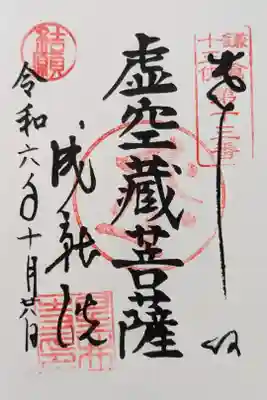 鎌倉第十三番
十三佛
奉拝
虚空蔵菩薩
成就院
結願
令和六年十月廿八日